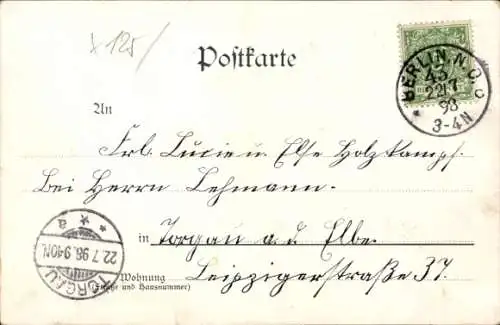 x 125/
Postkarte
BERLIN, N.O.
43
c
22/7
98
3-4N
An
Frl. Lucie u. Else Holzkampf.
Bei Herrn Lehmann.
in Torgau a. d. Elbe.
Wohnung Leipzigerstraße 37.
(Straße und Hausnummer)
* * a
22.7.98.9-10N.
TORGAU